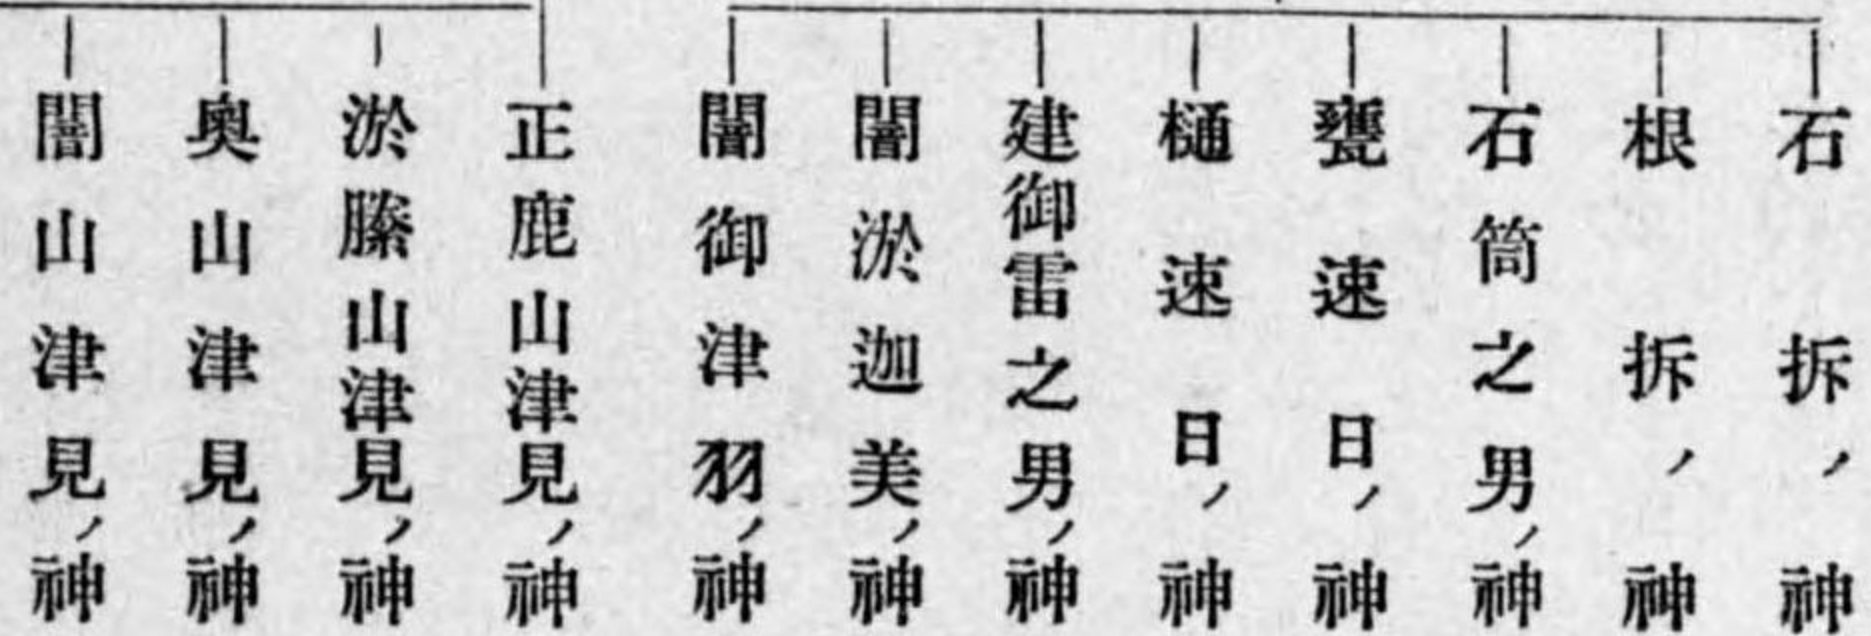 石拆ノ神
根拆ノ神
石筒之男ノ神
甕速日ノ神
樋速日ノ神
建御雷之男ノ神
闇淤迦美ノ神
闇御津羽ノ神
正鹿山津見ノ神
淤縢山津見ノ神
奥山津見ノ神
闇山津見ノ神